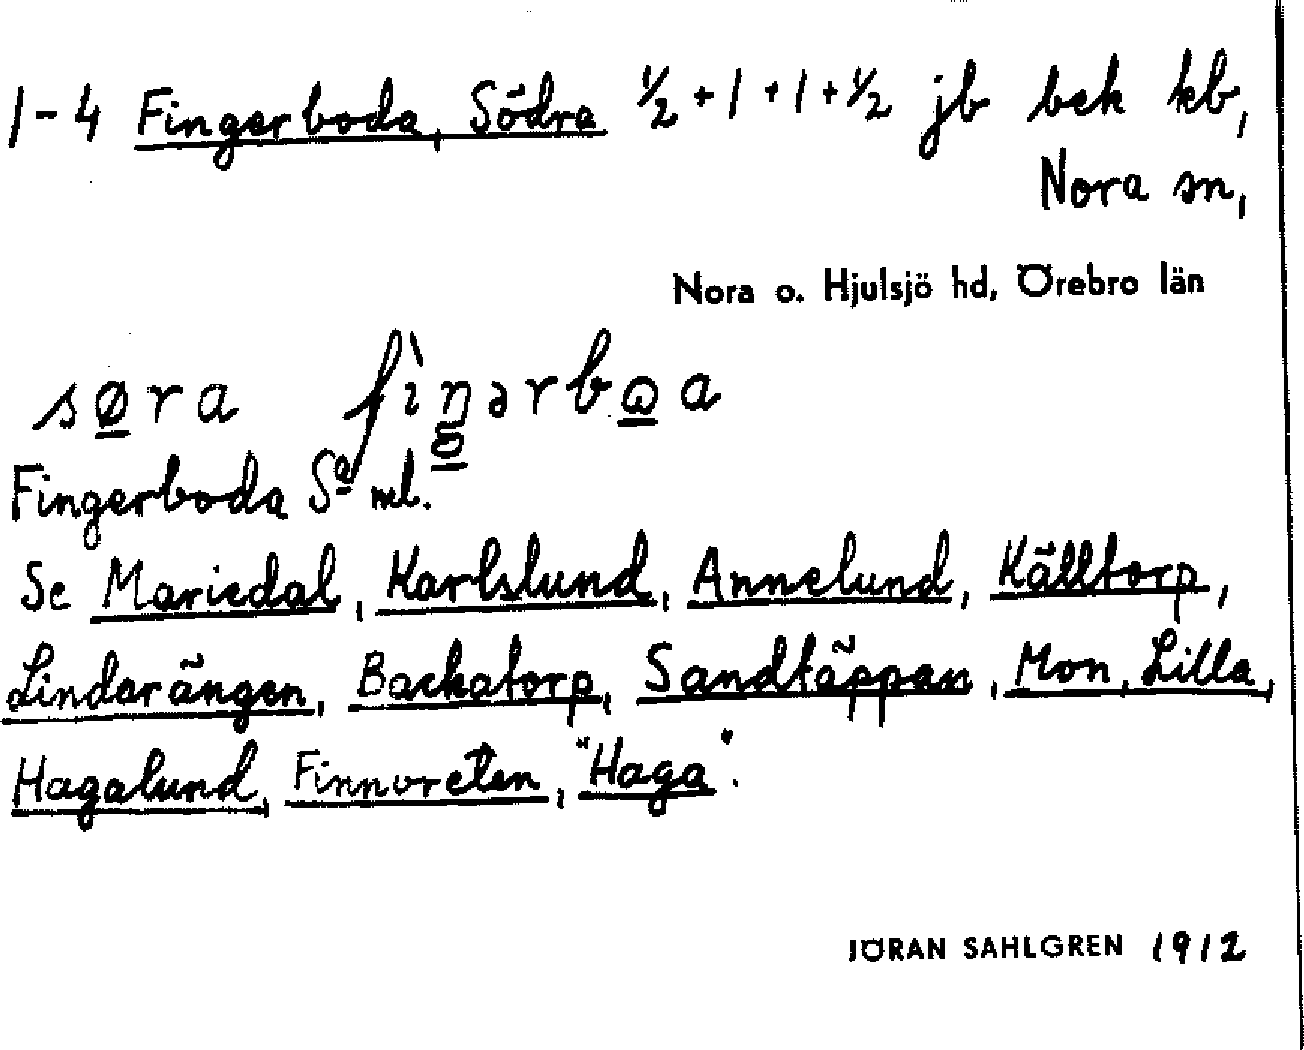 1-4 Fingerboda, Södra ½ + 1 + 1 + ½ jb bek kb,
Nora sn,
Nora o. Hjulsjö hd, Örebro län
søra fìŋərbɷa
Fingerboda Sa ml.
Se Mariedal, Karlslund, Annelund, Källtorp,
Linderängen, Backatorp, Sandtäppan, Mon, Lilla,
Hagalund, Finnoreten, "Haga".
JÖRAN SAHLGREN 1912